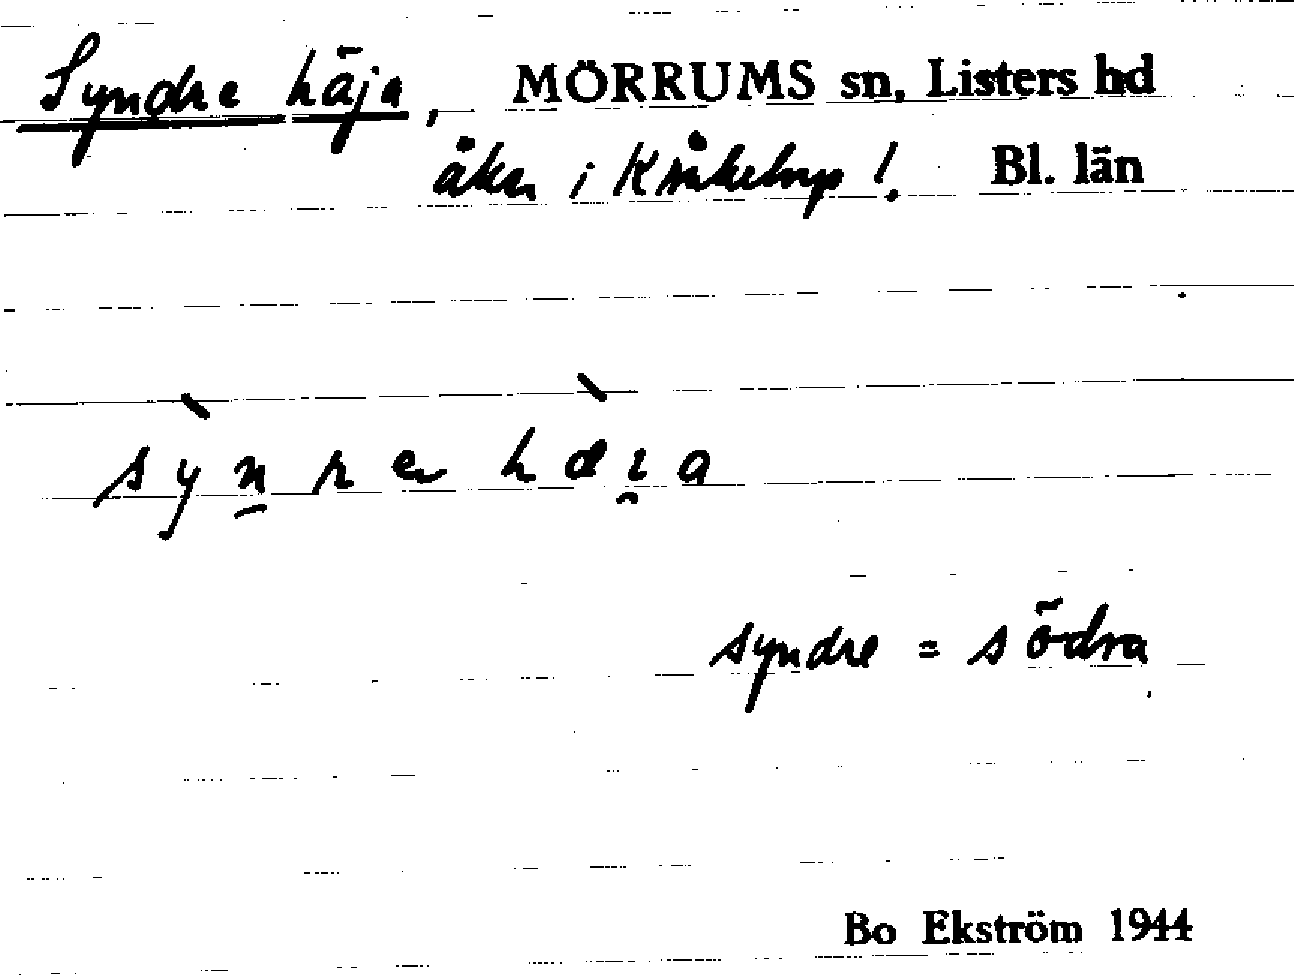 Syndre häja, MÖRRUMS sn, Listers hd
åker i Kråketorp! Bl. län
sỳn̠rɐ hæ̀ɪ̯a
syndre = södra
Bo Ekström 1944